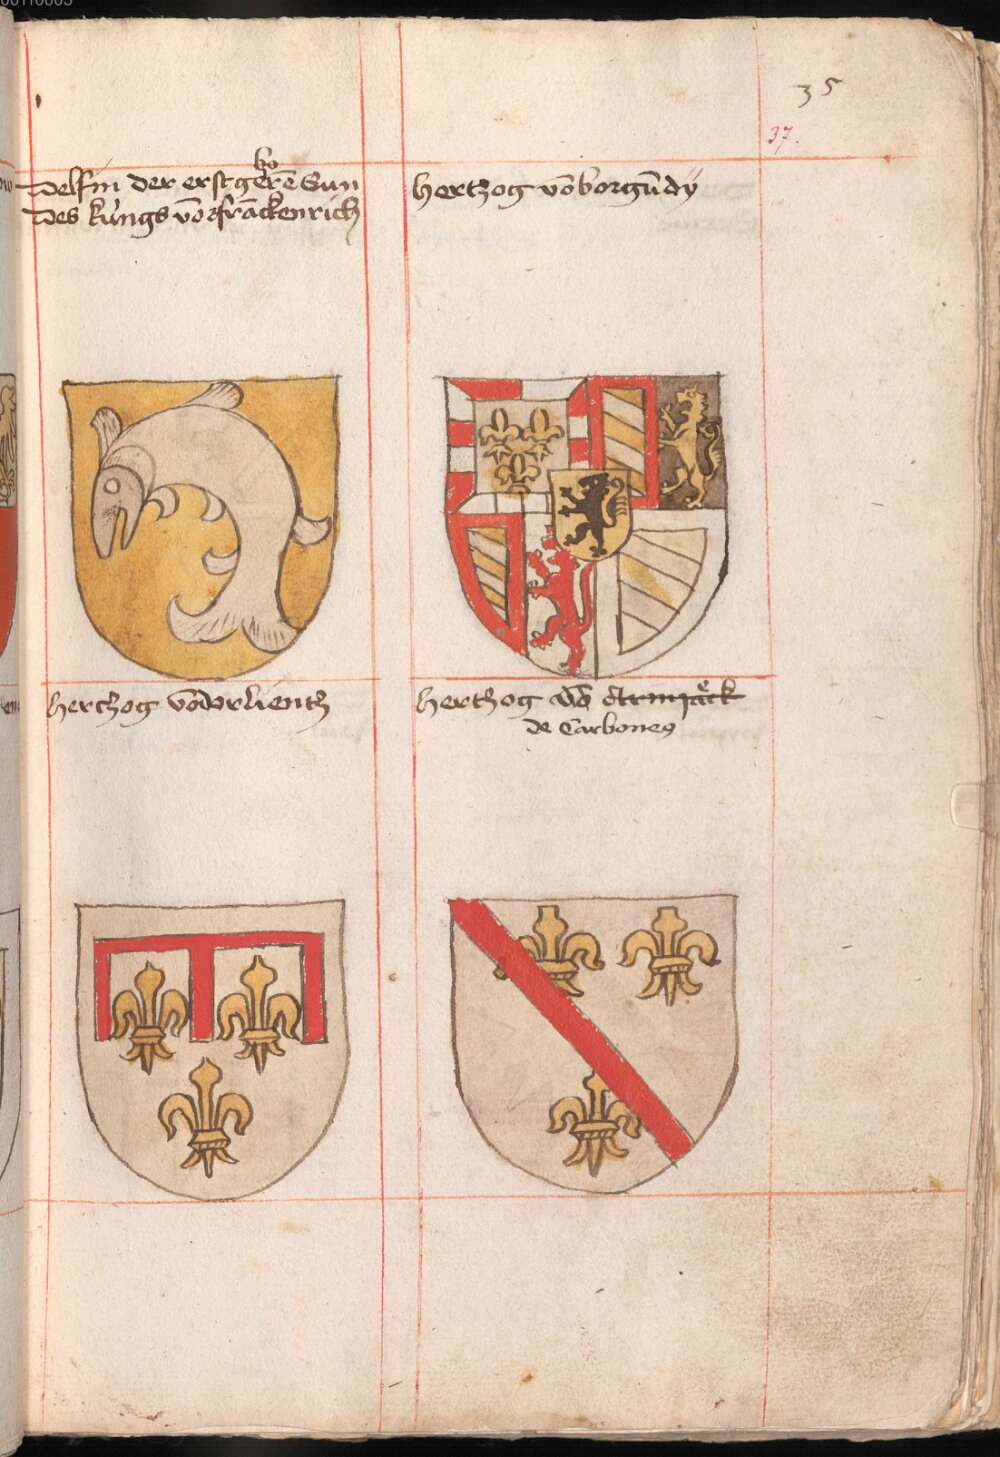 35
37.
delfin der erstgeborē Sun
des kúngs vō frāckenrich
hertzog vō borgūdÿ
hertzog vō orlientz
hertzog vō
de Carbones